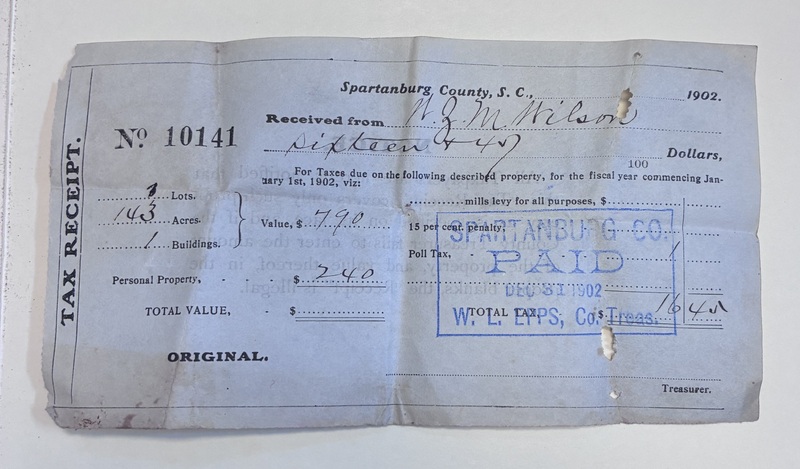 TAX RECEIPT.
Spartanburg County, S. C., 1902.
No 10141
Received from W. J. M Wilson
sixteen & 45
100 Dollars,
For Taxes due on the following described property, for the fiscal year commencing Jan-
uary 1st, 1902, viz:
Lots.
143 Acres.
1 Buildings.
Value, $ 790
mills levy for all purposes, $
15 per cent. penalty,
Poll Tax, - 1
Personal Property, - $ 240
TOTAL VALUE, - $
TOTAL TAX, $ 16 45
SPARTANBURG CO.
PAID
DEC 31 1902
W. L. EPPS, Co. Treas.
ORIGINAL.
Treasurer.